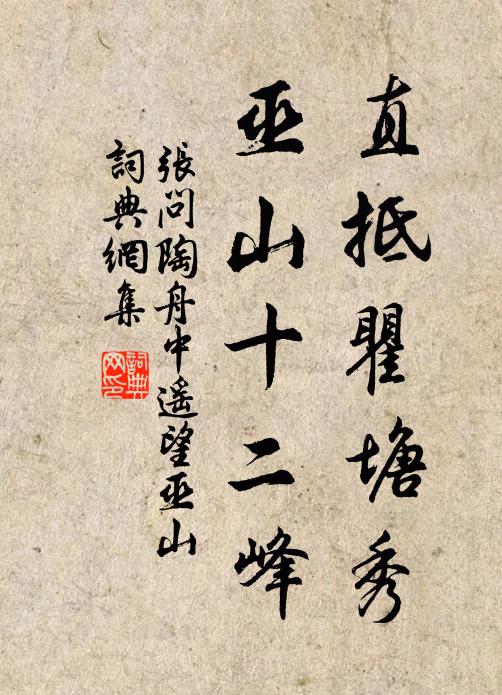 直抵瞿塘秀
巫山十二峰
張問陶舟中遥望巫山
詞典網集
詞典網印